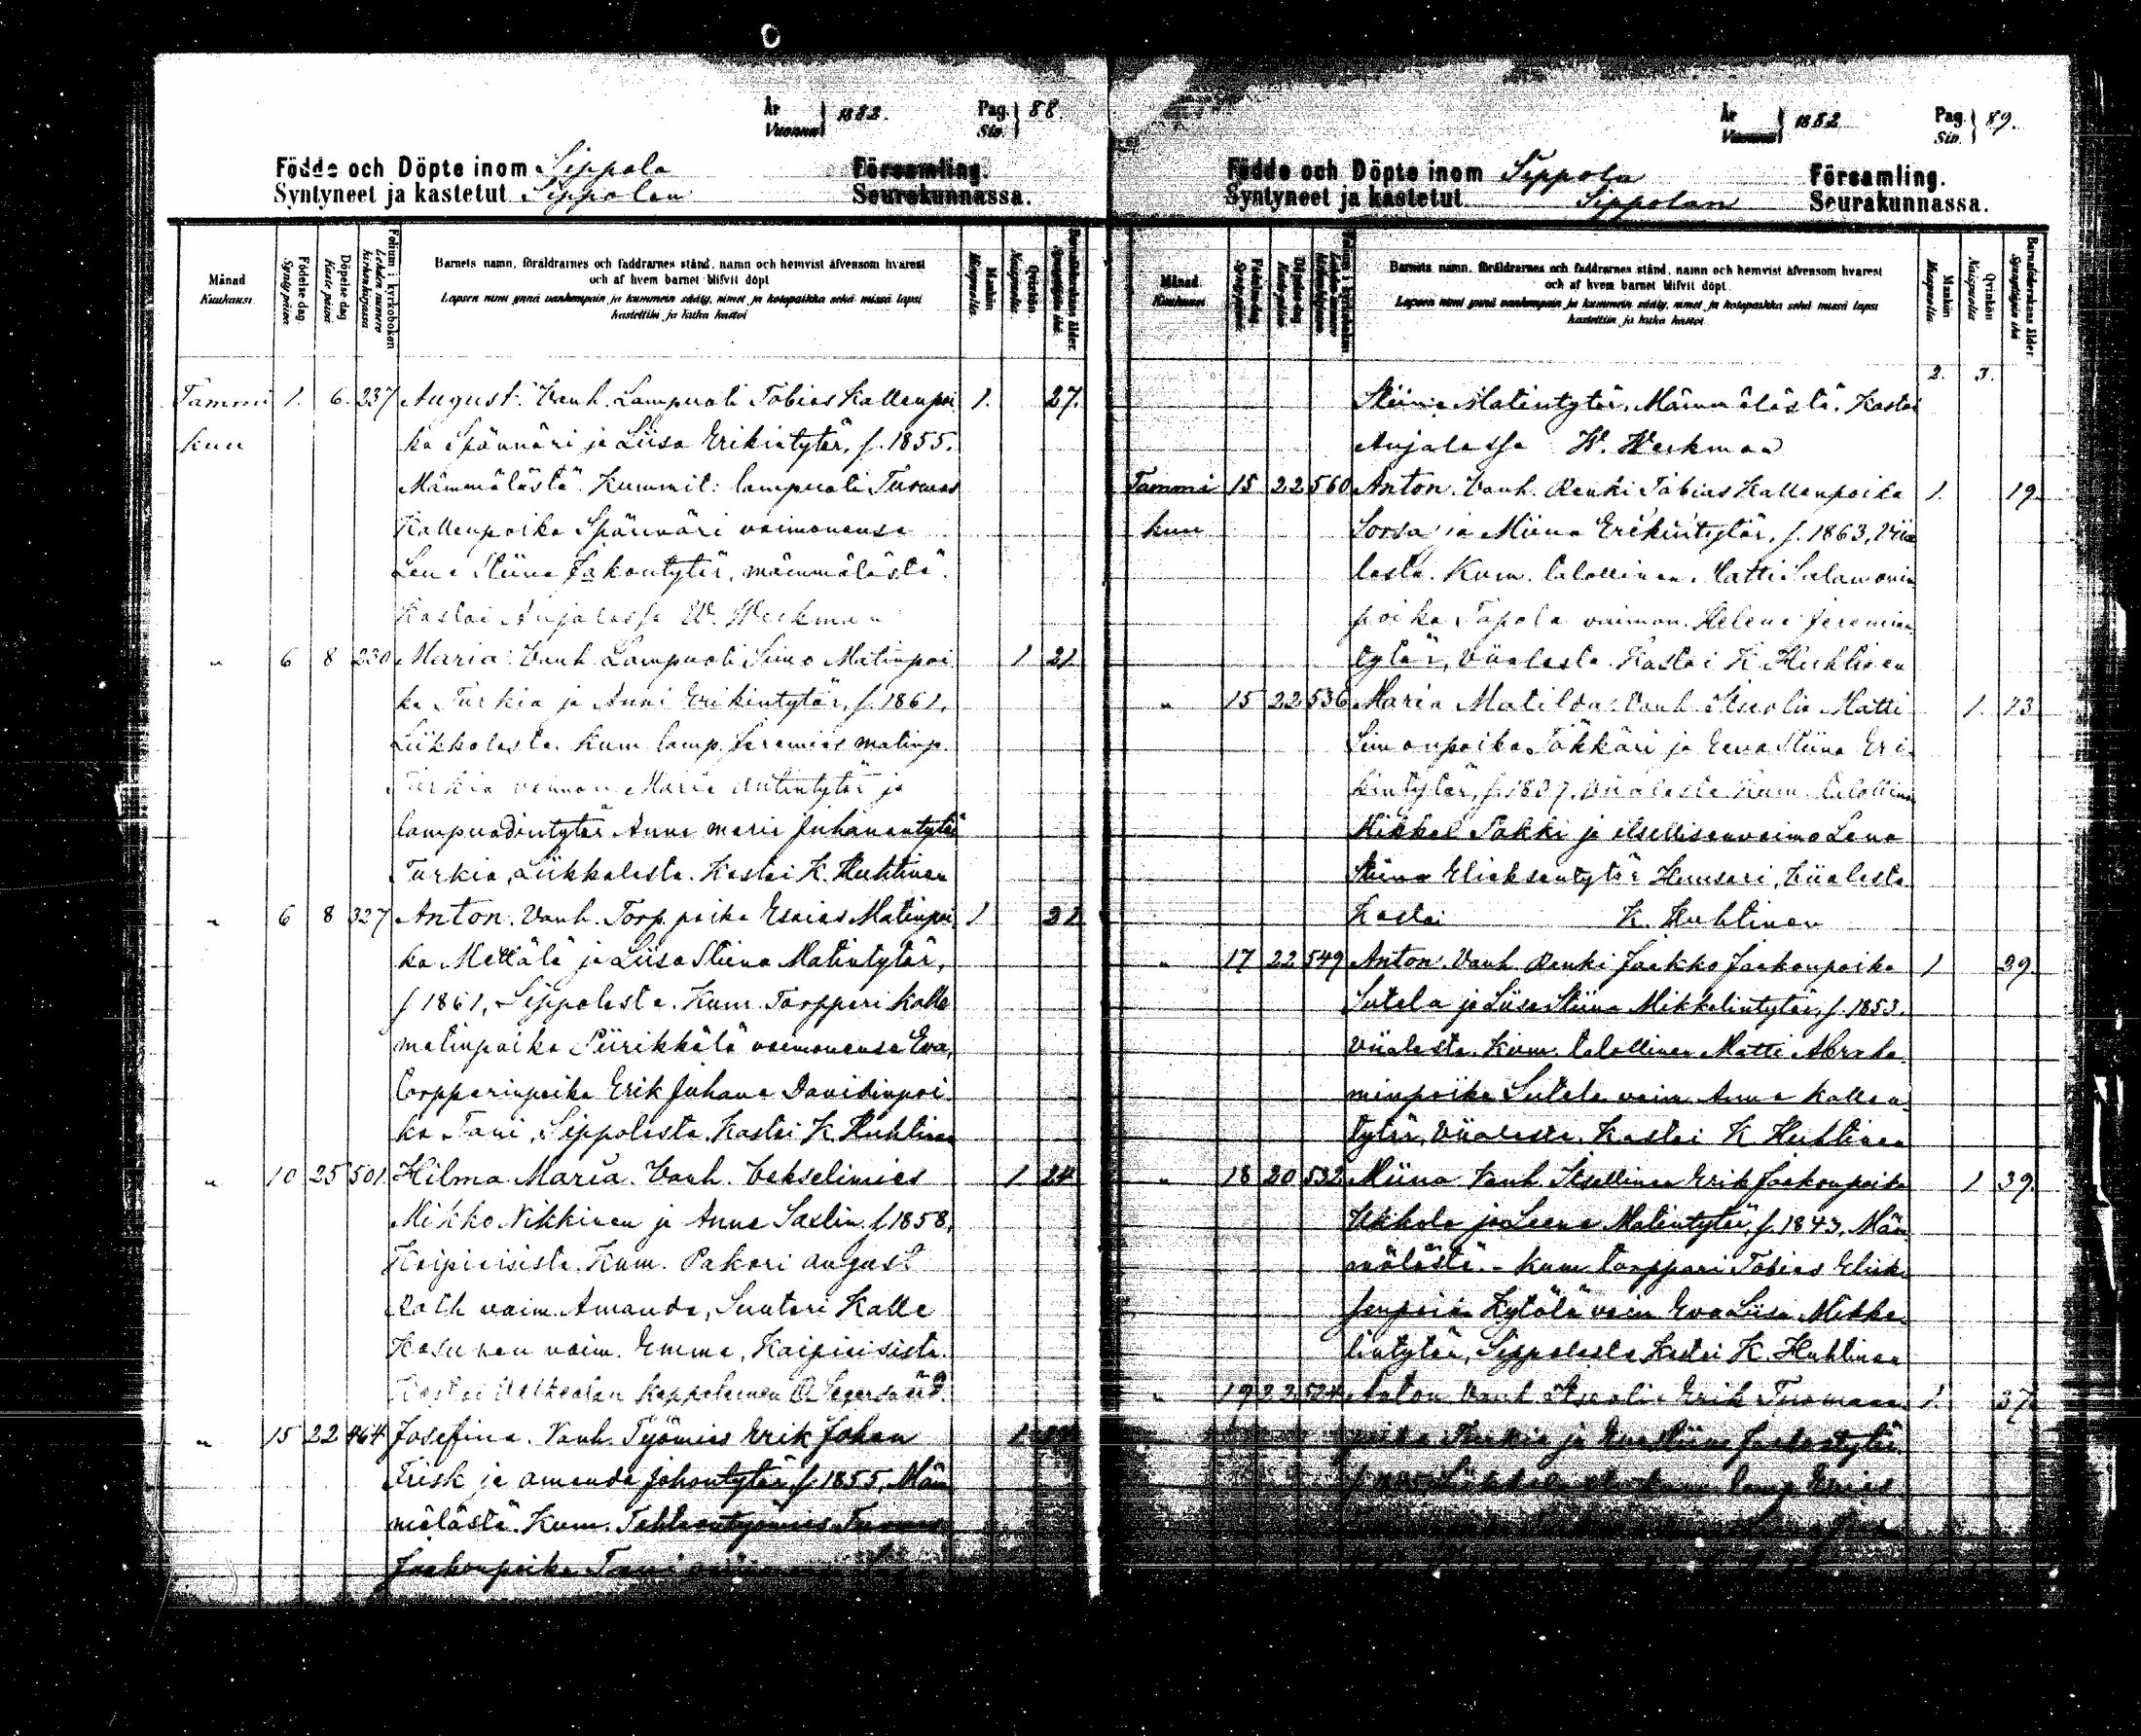 År
Vuonna } 1882.
Pag.
Siv. } 88.
Födde och Döpte inom Sippola Församling.
Syntyneet ja kastetut Sippolan Seurakunnassa.
Månad
Kuukausi
Födelse dag.
Synty päivä
Döpelse dag
Kaste päivä
Folium i kyrkoboken
Lehden numero kirkonkirjassa
Barnets namn, föräldrarnes och faddrarnes stånd, namn och hemvist äfvensom hvarest
och af hvem barnet blifvit döpt
Lapsen nimi ynnä vanhempain ja kummein sääty, nimet ja kotopaikka sekä missä lapsi
kastettiin ja kuka kastoi
Mankön
Miespuolia.
Qvinkön
Naispuolia.
Barnaföderskans ålder.
Synnyttäjän ikä.
Tammi 1. 6. 237 August. Vanh. Lampuoti Tobias Kallenpoi 1. 27.
kuu ka Spännäri ja Liisa Erikintytär, s. 1855.
Mämmälästä. Kummit: lampuoti Tuomas
Kallenpoika Spännäri vaimonensa
Lena Stiina Jakontytär, mämmälästä.
Kastoi Anjalassa W. Weckman
" 6 8 230 Maria. Vanh. Lampuoti Simo Matinpoi 1 21
ka Turkia ja Anni Erikintytär, s. 1861,
Liikkalasta. Kum. lamp. Jeremias matinp.
Turkia vaimon Maria Antintytär ja
lampuodintytär Anna maria Juhanantytär
Turkia, Liikkalasta. Kastoi K. Huhtinen
" 6 8 327 Anton. Vanh. Torp. poika Esaias Matinpoi 1 21
ka Mettälä ja Liisa Stiina Matintytär,
s 1861, Sippolasta. Kum. Torppari Kalle
matinpoika Piirikkälä vaimonensa Eva,
Torpparinpoika Erik Juhana Davidinpoi
ka Tani, Sippolasta. Kastoi K. Huhtinen
" 10 25 501. Hilma Maria. Vanh. Vekselimies 1 24
Mikko Nikkinen ja Anna Saxlin s 1858,
Kaipiaisista. Kum. Pakari August
Roth vaim. Amanda, Suutari Kalle
Kosunen vaim. Emma, Kaipiaisista.
Kastoi Valkealan kappalainen
" 15 22 464 Josefina. Vanh. Työmies Erik Johan 1
Frisk ja Amanda Johontytär, s 1855, Mäm
mälästä. Kum. Tehtaantyömies Tuomas
Jaakonpoika Tani
År
Vuonna } 1882
Pag.
Siv. } 89.
Födde och Döpte inom Sippola Församling.
Syntyneet ja kastetut Sippolan Seurakunnassa.
Månad
Kuukausi
Födelse dag.
Synty päivä
Döpelse dag
Kaste päivä
Folium i kyrkoboken
Lehden numero kirkonkirjassa
Barnets namn, föräldrarnes och faddrarnes stånd, namn och hemvist äfvensom hvarest
och af hvem barnet blifvit döpt.
Lapsen nimi ynnä vanhempain ja kummein sääty, nimet ja kotopaikka sekä missä lapsi
kastettiin ja kuka kastoi
Mankön
Miespuolia
Qvinkön
Naispuolia
Barnaföderskans ålder.
Synnyttäjän ikä
2. 3.
Stiina Matintytär, Mämmälästä. Kastoi
Anjalassa W. Weckman
Tammi 15 22 560 Anton. Vanh. Renki Tobias Kallenpoika 1. 19.
kuu Sorsa ja Miina Erikintytär, s. 1863, Viia
lasta. Kum. talollinen Matti Salamonin
poika Tapola vaimon. Helena Jeremian
tytär, Viialasta. Kastoi K. Huhtinen
" 15 22 536 Maria Matilda. Vanh. Itsenlis Matti 1.
Simonpoika Tökkäri ja Eeva Stiina Eri
kintytär, s. 1837. Viialasta Kum. talollinen
Mikkel Pakki ja itsellisenvaimo Lena
Stiina Eliaksentytär Huusari, Viialasta
Kastoi K. Huhtinen
" 17 22 549 Anton. Vanh. Renki Jaakko Jaakonpoika 1 29.
Sutela ja Liisa Stiina Mikkelintytär, s. 1853.
Viialasta. Kum. talollinen Matti Abraha
minpoika Sutela vaim. Anna Kallen
tytär, Viialasta. Kastoi K. Huhtinen
" 18 20 532 Miina. Vanh. Itsellinen Erik Jaakonpoika 1 39.
Ukkola ja Leena Matintytär, s. 1843, Mäm
mälästä. Kum. torppari Tobias Eliak
senpoika Kytölä vaim Eva Liisa Mikke
lintytär, Sippolasta Kastoi K. Huhtinen
" 19 22 524 Anton. Vanh. Erik Tuomaan 1. 37.
poika Turkia ja Eva Stiina Jaakontytär